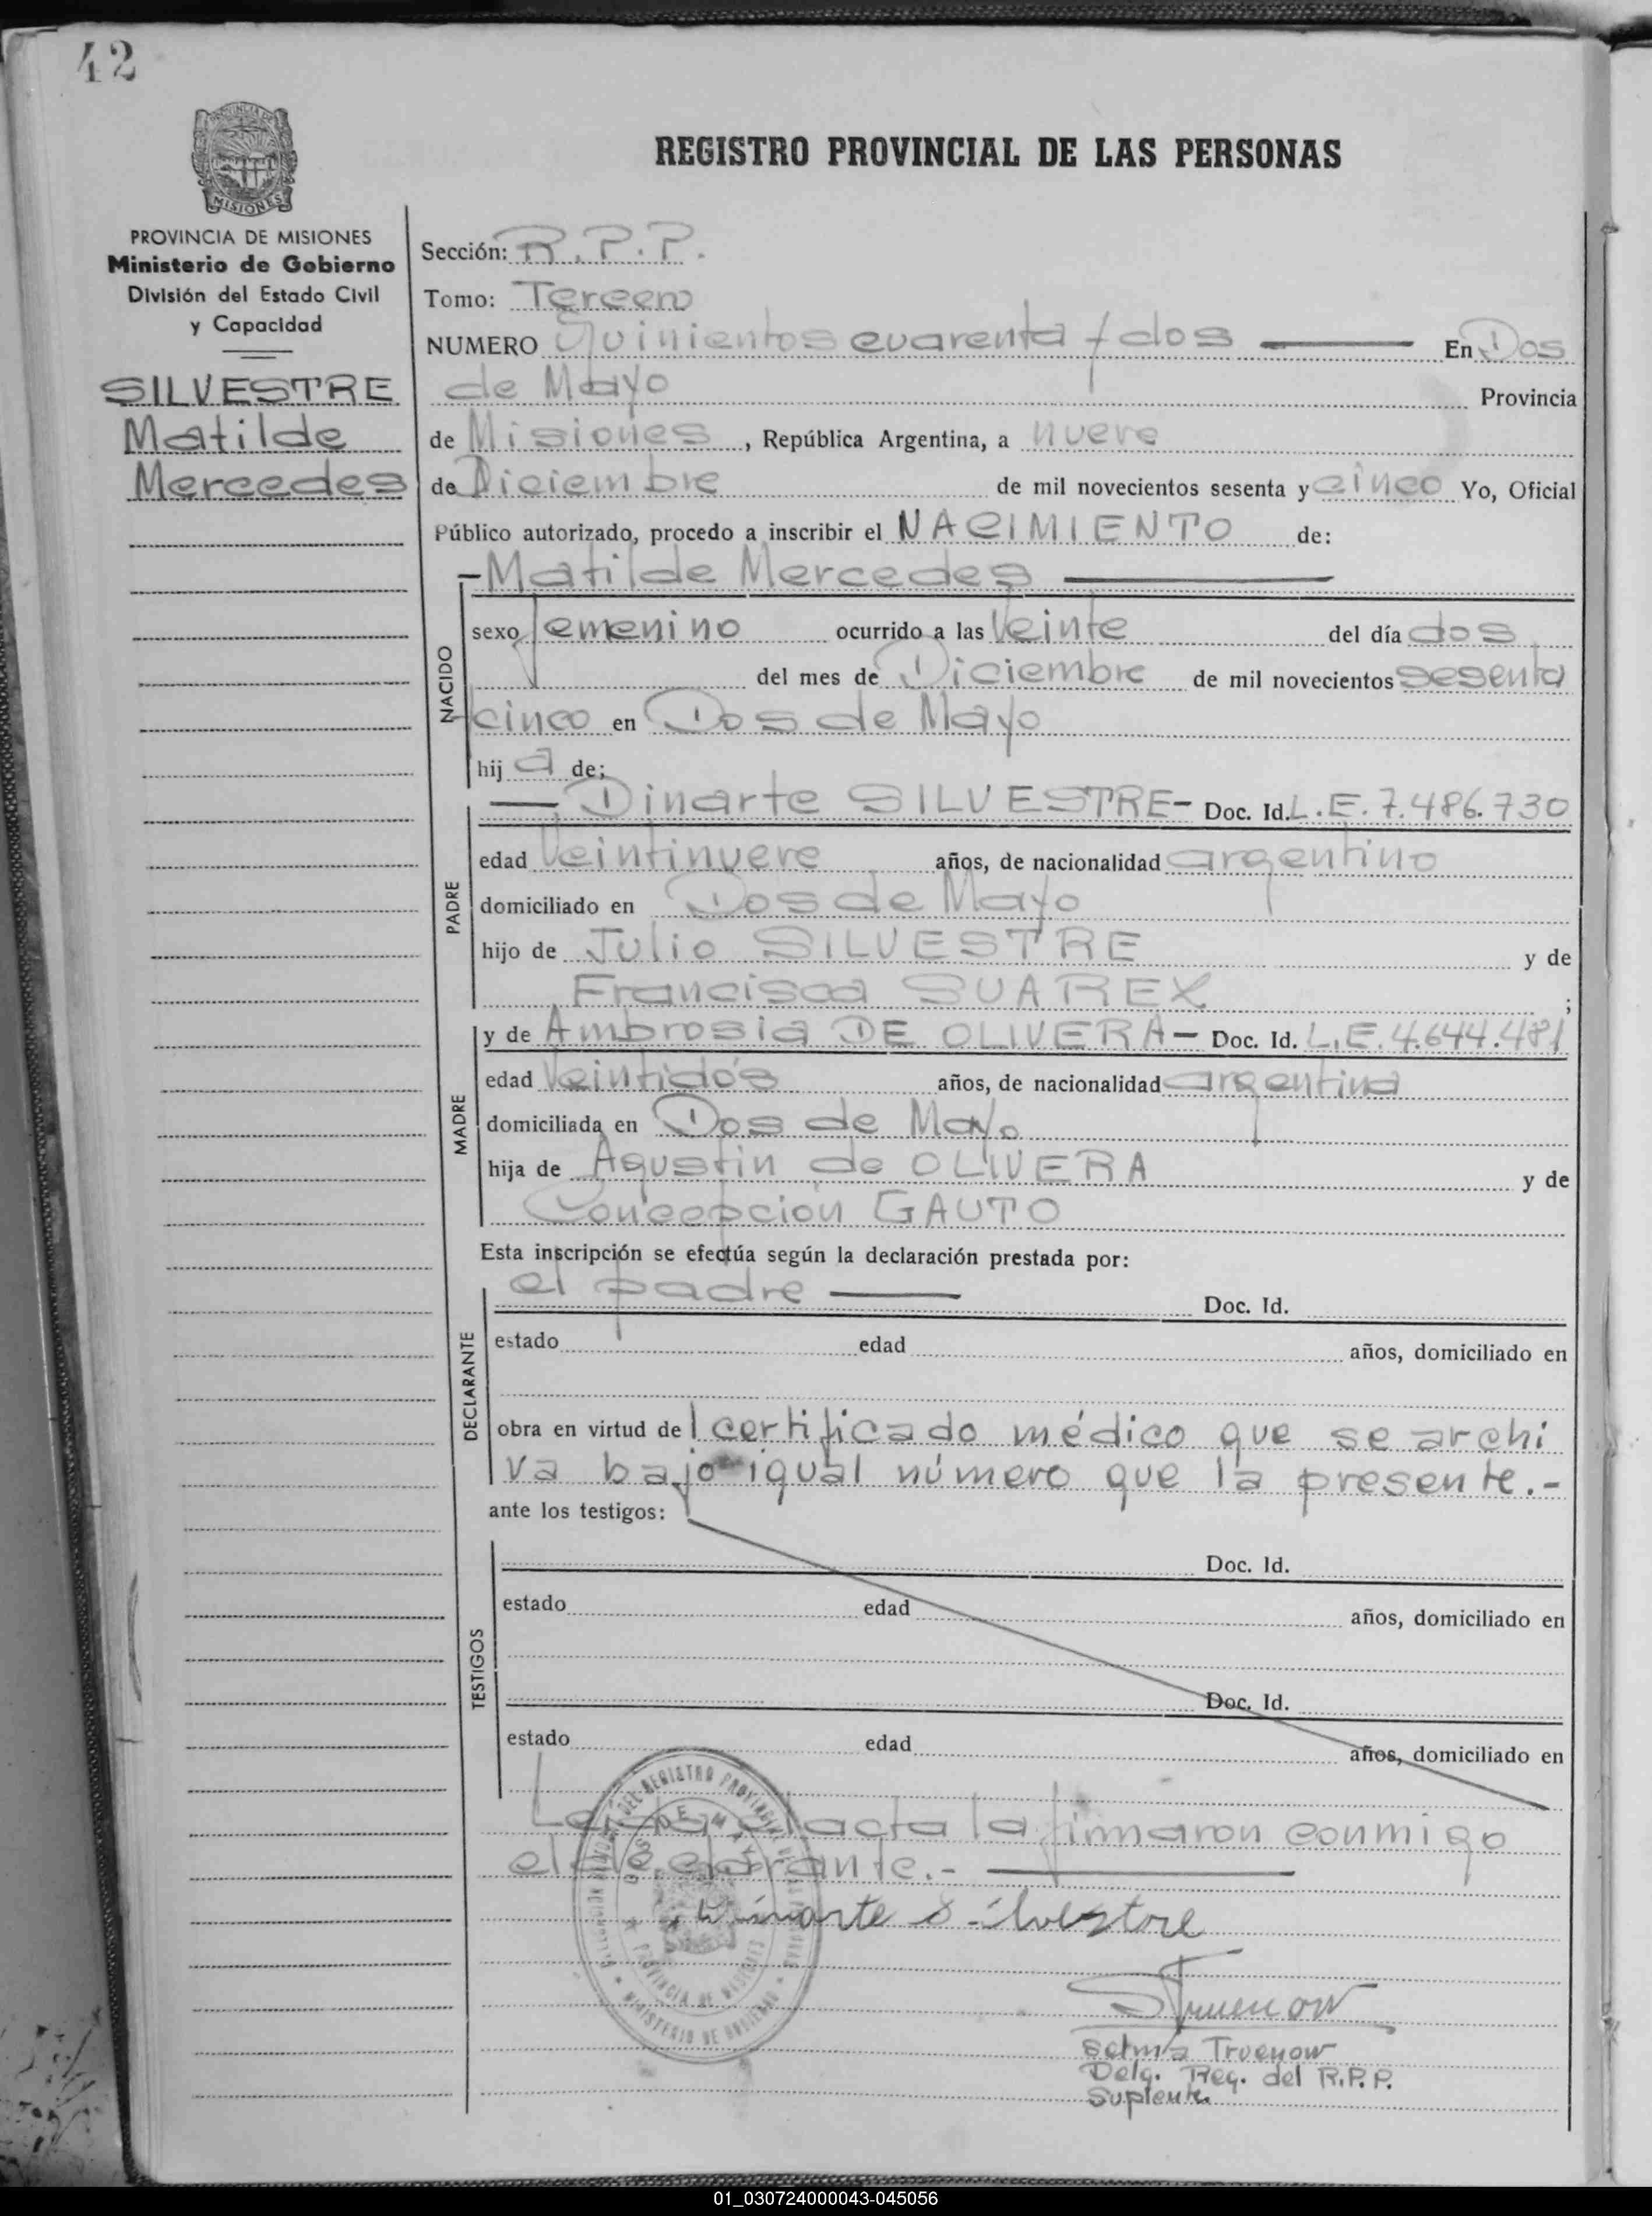 42
PROVINCIA DE MISIONES
Ministerio de Gobierno
División del Estado Civil
y Capacidad
SILVESTRE
Matilde
Mercedes
REGISTRO PROVINCIAL DE LAS PERSONAS
Sección: R.P.P.
Tomo: Tercero
NUMERO Quinientos cuarenta y dos En Dos
de Mayo Provincia
de Misiones, República Argentina, a nueve
de Diciembre de mil novecientos sesenta y cinco Yo, Oficial
Público autorizado, procedo a inscribir el NACIMIENTO de:
-Matilde Mercedes
NACIDO
sexo femenino ocurrido a las Veinte del día dos
del mes de Diciembre de mil novecientos sesenta
cinco en Dos de Mayo
hij a de:
PADRE
Dinarte SILVESTRE- Doc. Id. L.E. 7.486.730
edad Veintinueve años, de nacionalidad argentino
domiciliado en Dos de Mayo
hijo de Julio SILVESTRE y de
Francisca SUAREX ;
MADRE
y de Ambrosia DE OLIVERA- Doc. Id. L.E. 4.644.481
edad Veintidós años, de nacionalidad argentina
domiciliada en Dos de Mayo
hija de Agustin de OLIVERA y de
Concepción GAUTO
Esta inscripción se efectúa según la declaración prestada por:
DECLARANTE
el padre Doc. Id.
estado edad años, domiciliado en
obra en virtud de l certificado médico que se archi
va bajo igual número que la presente.-
ante los testigos:
TESTIGOS
Doc. Id.
estado edad años, domiciliado en
Doc. Id.
estado edad años, domiciliado en
acta la firmaron conmigo
el declarante.-
Dinarte Silvestre
STruenow
Selma Truenow
Delg. Reg. del R.P.P.
Suplente
DEL REGISTRO PROVINCIAL DE LAS PERSONAS
DOS DE MAYO
PROVINCIA DE MISIONES
MINISTERIO DE GOBIERNO
01_030724000043-045056